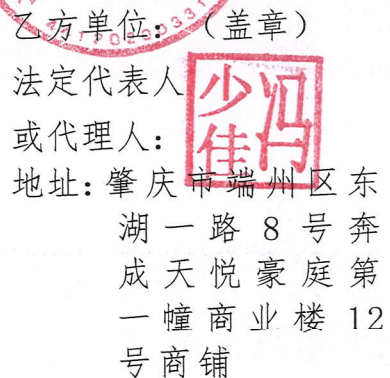 乙方单位：（盖章）
法定代表人
或代理人：
冯少佳
地址：肇庆市端州区东
湖一路8号奔
成天悦豪庭第
一幢商业楼12
号商铺